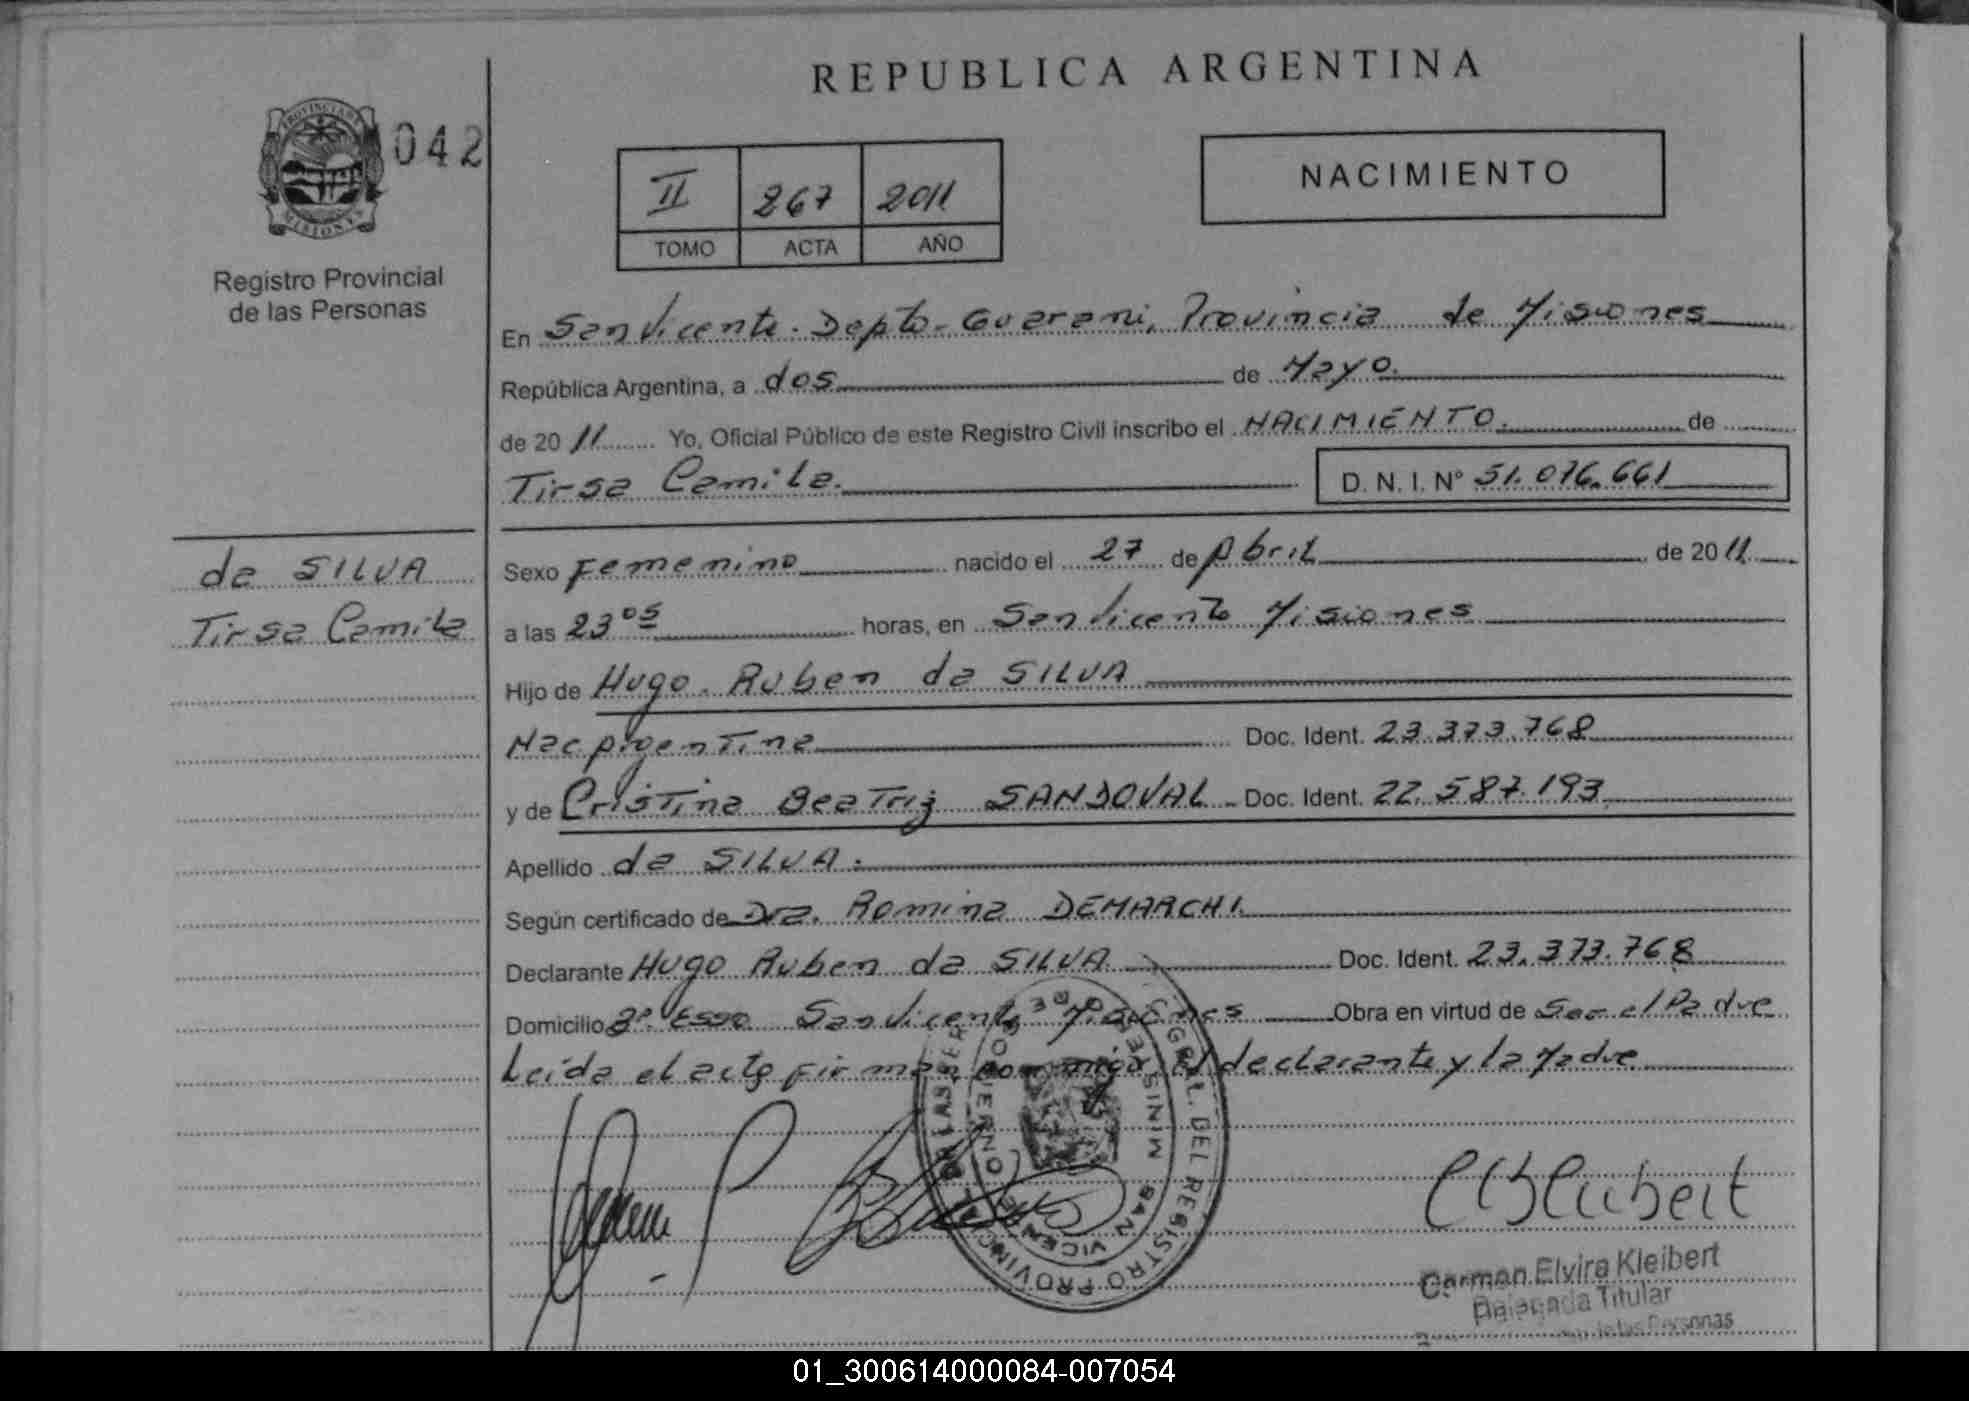 REPUBLICA ARGENTINA
PROVINCIA DE MISIONES
042
II 267 2011
TOMO ACTA AÑO
NACIMIENTO
Registro Provincial
de las Personas
En San Vicente. Depto. Guarani, Provincia de Misiones
República Argentina, a dos de Mayo.
de 2011 Yo, Oficial Público de este Registro Civil inscribo el NACIMIENTO. de
Tirsa Camila. D. N. I. Nº 51.076.661
da SILVA
Tirsa Camila
Sexo Femenino nacido el 27 de Abril de 2011
a las 23 05 horas, en San Vicente Misiones
Hijo de Hugo Ruben da SILVA
Nac Argentina Doc. Ident. 23.373.768
y de Cristina Beatriz SANDOVAL Doc. Ident. 22.587.193
Apellido da SILVA.
Según certificado de Dra. Romina DEMARCHI.
Declarante Hugo Ruben da SILVA Doc. Ident. 23.373.768
Domicilio Bº Esso San Vicente Misiones Obra en virtud de Ser el Padre
Leida el acta firman conmigo el declarante y la Madre
GRAL. DEL REGISTRO PROVINCIAL DE LAS PER
MINIS GOBIERNO
SAN VICENTE
Carmen Elvira Kleibert
Delegada Titular
de las Personas
01_300614000084-007054